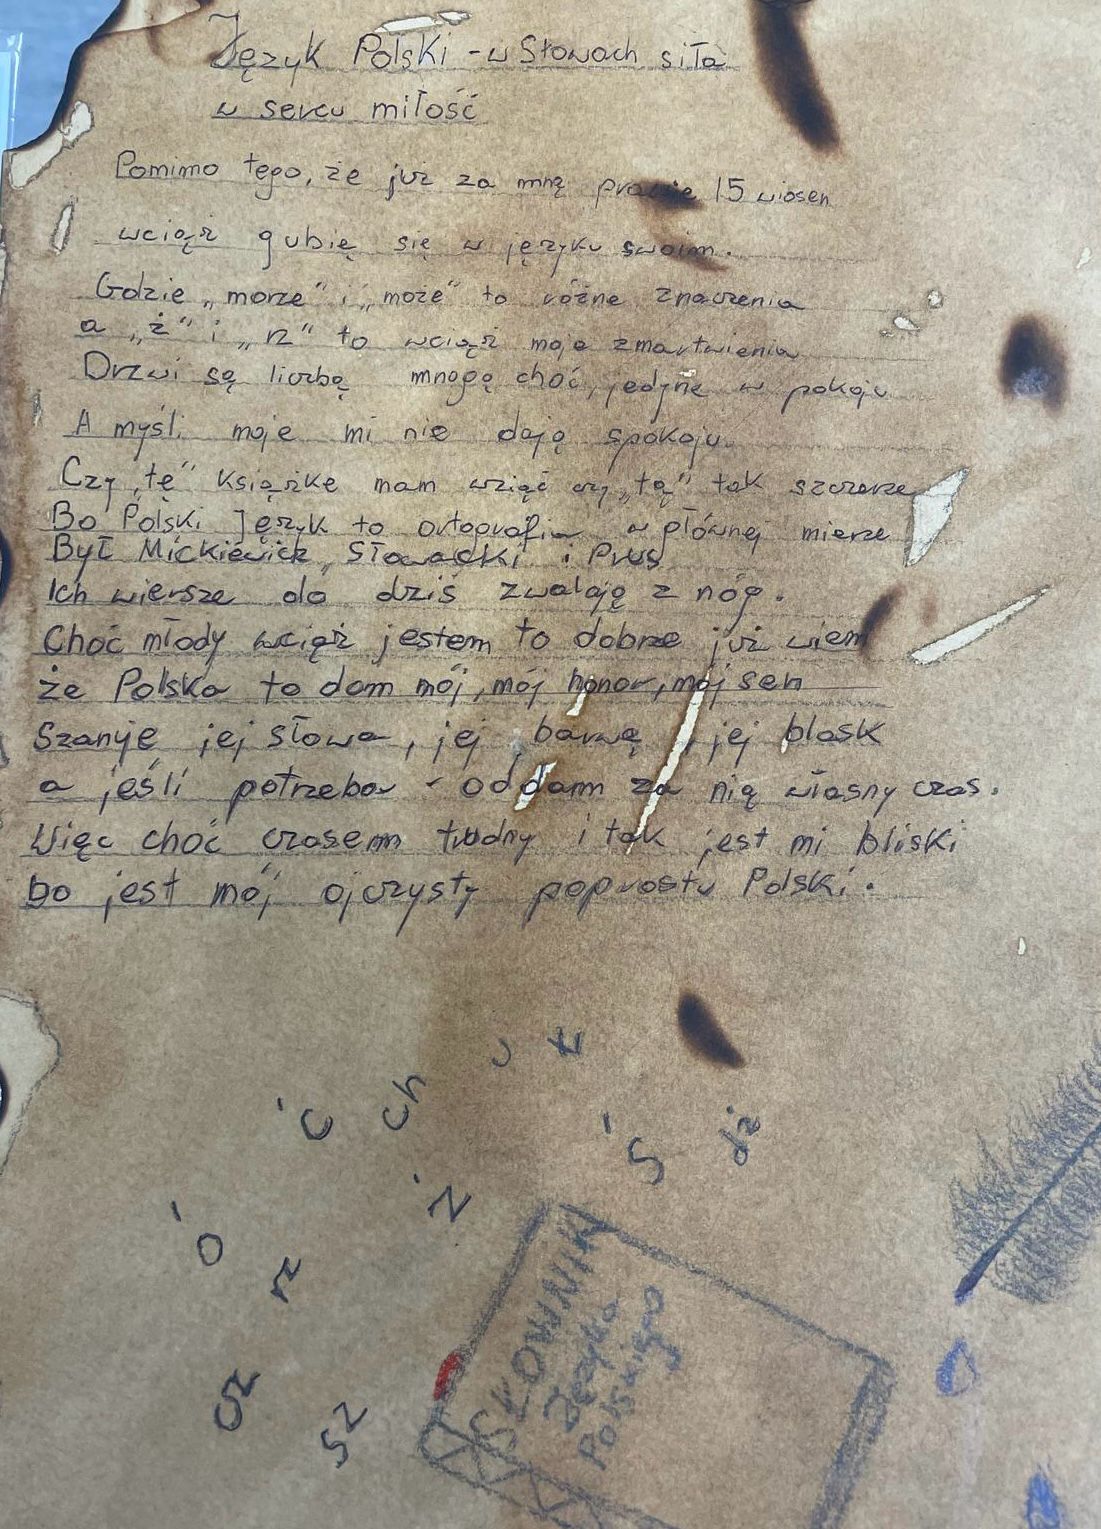 Język Polski - w Słowach siła
w sercu miłość
Pomimo tego, że już za mną prawie 15 wiosen
wciąż gubię się w języku swoim.
Gdzie „morze” i „może” to różne znaczenia
a „ż” i „rz” to wciąż moje zmartwienia
Drzwi są liczbą mnogą choć, jedyne w pokoju
A myśli moje mi nie dają spokoju.
Czy „tę” książkę mam wziąć czy „tą” tak szczerze
Bo Polski Język to ortografia w głównej mierze
Był Mickiewicz, Słowacki i Prus
Ich wiersze do dziś zwalają z nóg.
Choć młody wciąż jestem to dobrze już wiem
że Polska to dom mój, mój honor, mój sen
Szanuję jej słowa, jej barwę, jej blask
a jeśli potrzeba - oddam za nią własny czas.
Więc choć czasem trudny i tak jest mi bliski
bo jest mój ojczysty poprostu Polski.
ć ch
ś dż
ó rz ż
cz sz
SŁOWNIK
Języka
Polskiego